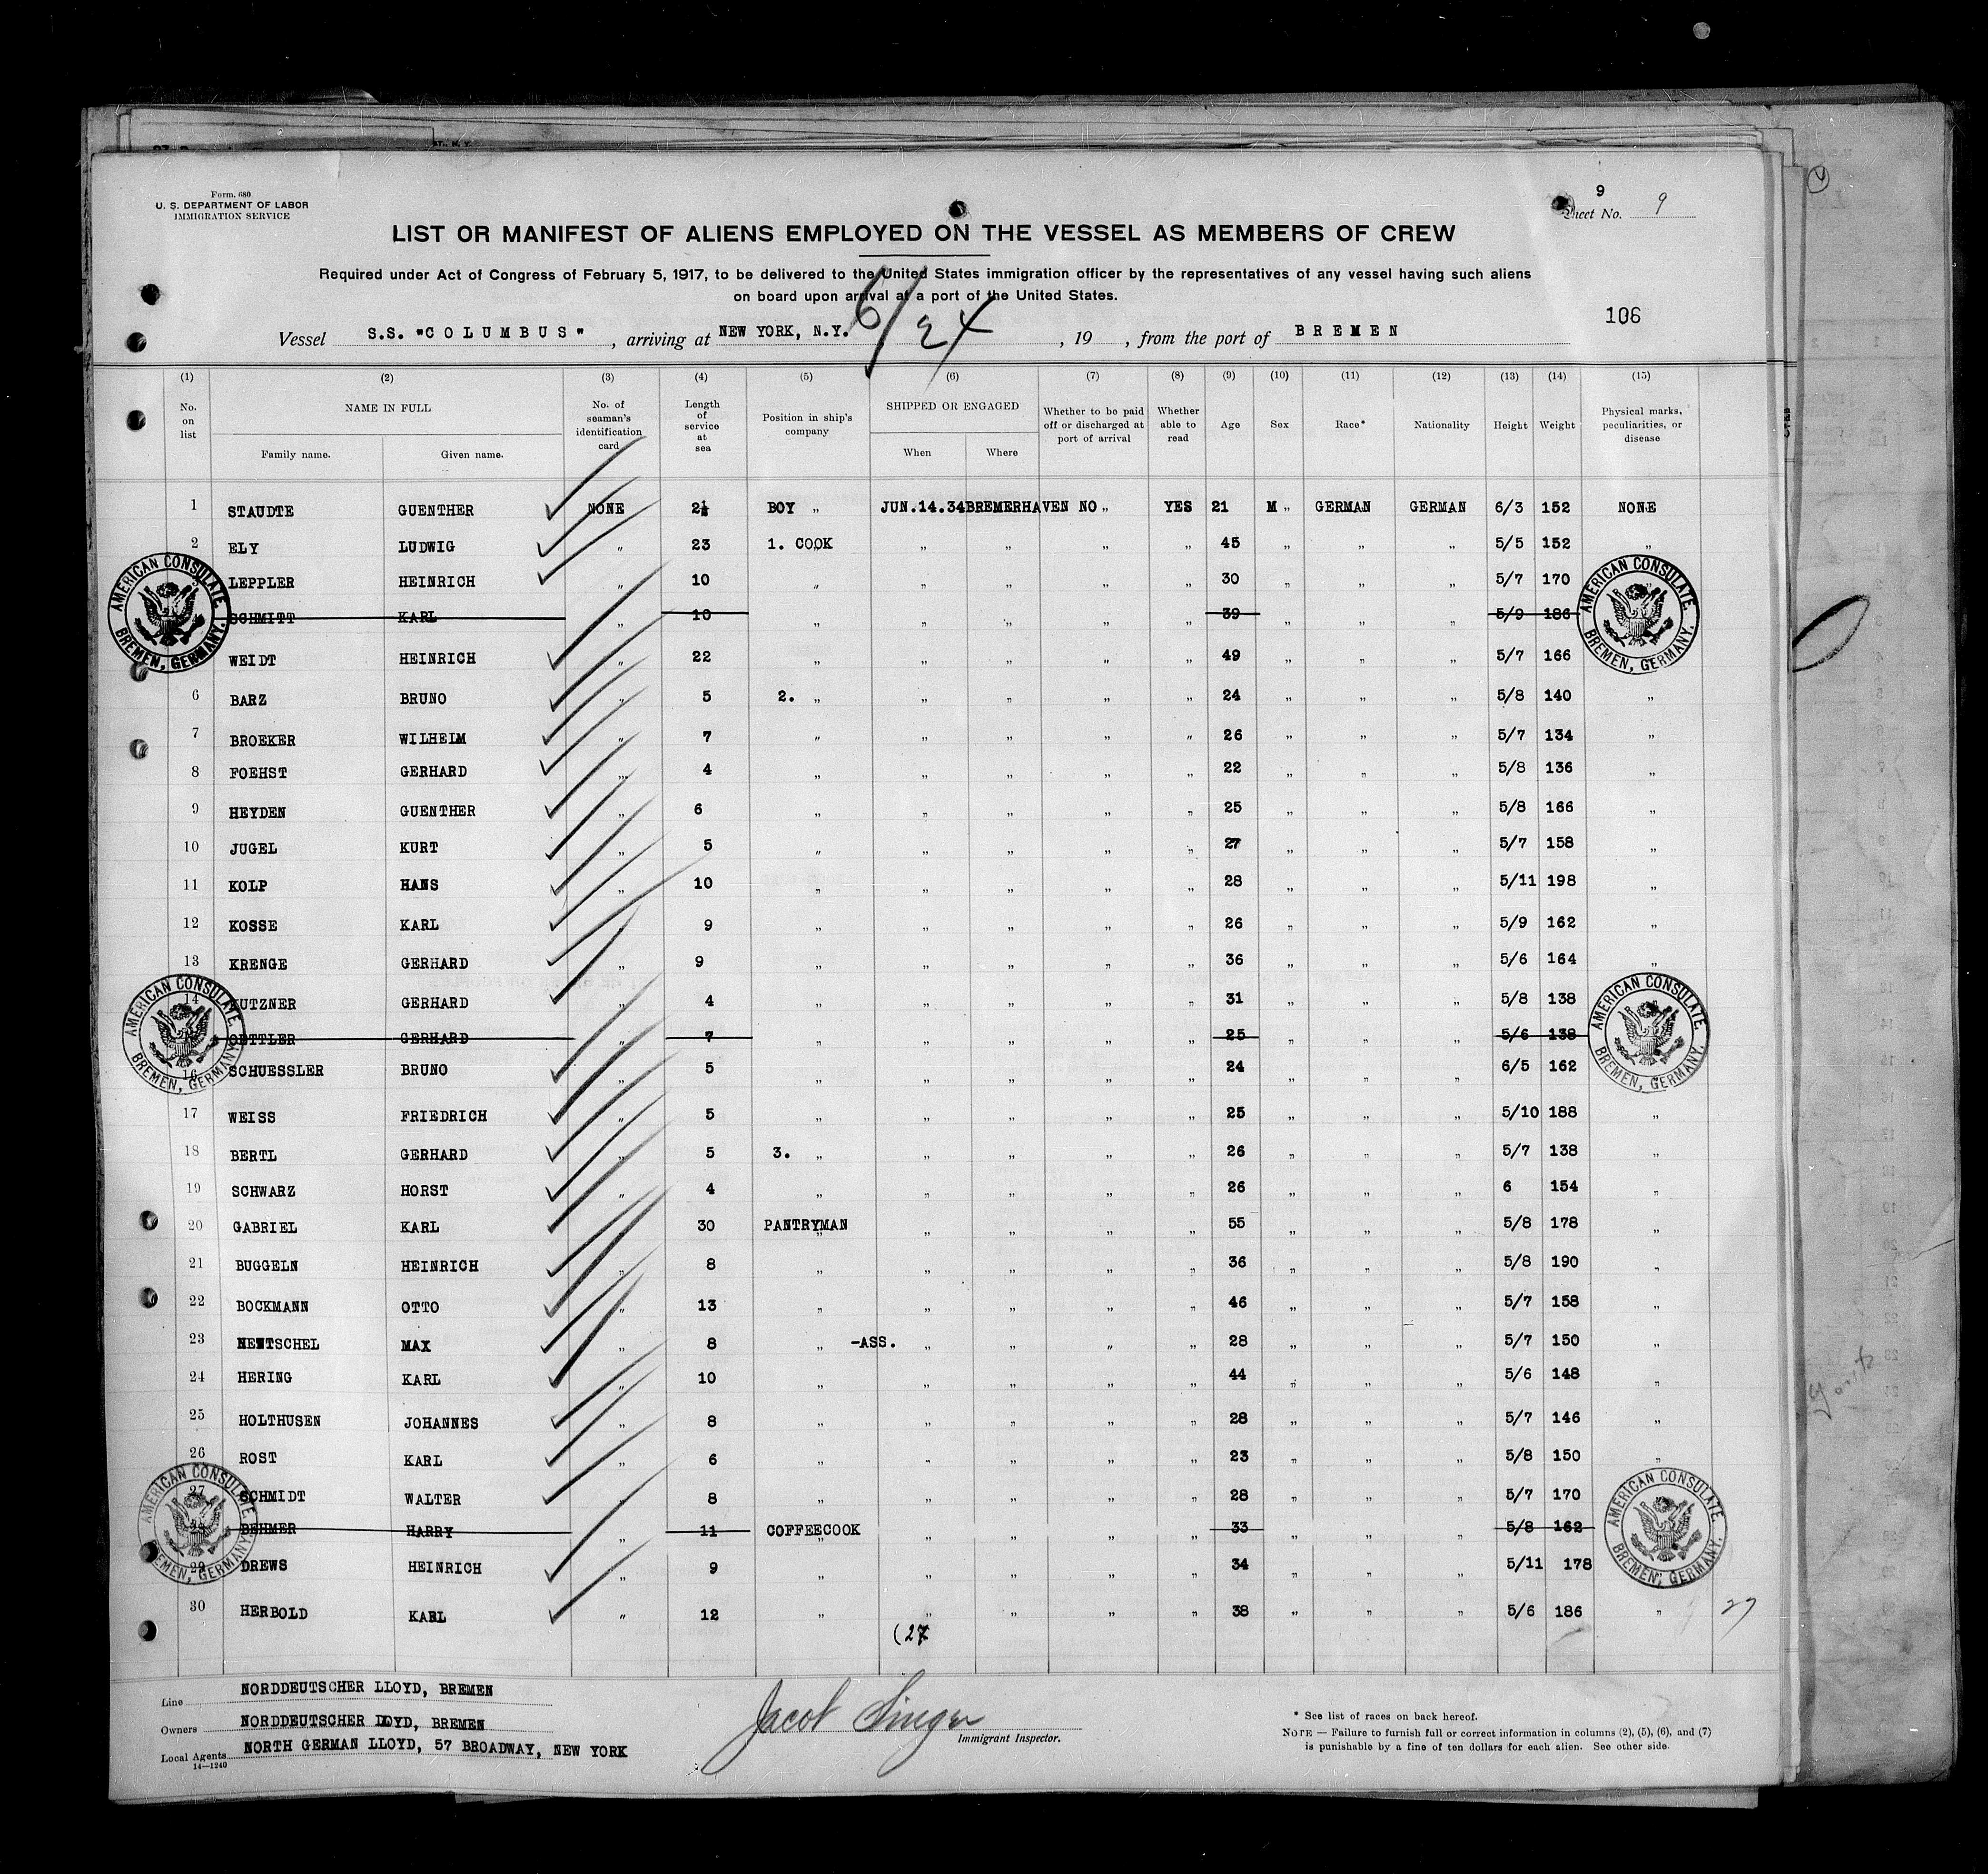 Form. 680
U. S. DEPARTMENT OF LABOR
IMMIGRATION SERVICE
9
Sheet No. 9
LIST OR MANIFEST OF ALIENS EMPLOYED ON THE VESSEL AS MEMBERS OF CREW
Required under Act of Congress of February 5, 1917, to be delivered to the United States immigration officer by the representatives of any vessel having such aliens
on board upon arrival at a port of the United States.
106
Vessel S.S. "COLUMBUS", arriving at NEW YORK, N.Y. 6/24, 19 , from the port of BREMEN
(1) (2) (3) (4) (5) (6) (7) (8) (9) (10) (11) (12) (13) (14) (15)
No. on list NAME IN FULL Family name. Given name. No. of seaman's identification card Length of service at sea Position in ship's company SHIPPED OR ENGAGED When Where Whether to be paid off or discharged at port of arrival Whether able to read Age Sex Race* Nationality Height Weight Physical marks, peculiarities, or disease
1 STAUDTE GUENTHER NONE 2½ BOY „ JUN.14.34 BREMERHAVEN NO „ YES 21 M „ GERMAN GERMAN 6/3 152 NONE
2 ELY LUDWIG „ 23 1. COOK „ „ „ „ 45 „ „ „ 5/5 152 „
3 LEPPLER HEINRICH „ 10 „ „ „ „ „ 30 „ „ „ 5/7 170 „
SCHMITT KARL „ 10 „ „ „ „ „ 39 „ „ „ 5/9 186
WEIDT HEINRICH „ 22 „ „ „ „ „ 49 „ „ „ 5/7 166
6 BARZ BRUNO „ 5 2. „ „ „ „ „ 24 „ „ „ 5/8 140 „
7 BROEKER WILHELM „ 7 „ „ „ „ „ 26 „ „ „ 5/7 134 „
8 FOEHST GERHARD „ 4 „ „ „ „ „ 22 „ „ „ 5/8 136 „
9 HEYDEN GUENTHER „ 6 „ „ „ „ „ 25 „ „ „ 5/8 166 „
10 JUGEL KURT „ 5 „ „ „ „ „ 27 „ „ „ 5/7 158 „
11 KOLP HANS „ 10 „ „ „ „ „ 28 „ „ „ 5/11 198 „
12 KOSSE KARL „ 9 „ „ „ „ „ 26 „ „ „ 5/9 162 „
13 KRENGE GERHARD „ 9 „ „ „ „ „ 36 „ „ „ 5/6 164 „
14 KUTZNER GERHARD „ 4 „ „ „ „ „ 31 „ „ „ 5/8 138
OETTLER GERHARD „ 7 „ „ „ „ „ 25 „ „ „ 5/6 138
16 SCHUESSLER BRUNO „ 5 „ „ „ „ „ 24 „ „ „ 6/5 162 „
17 WEISS FRIEDRICH „ 5 „ „ „ „ „ 25 „ „ „ 5/10 188 „
18 BERTL GERHARD „ 5 3. „ „ „ „ „ 26 „ „ „ 5/7 138 „
19 SCHWARZ HORST „ 4 „ „ „ „ „ 26 „ „ „ 6 154 „
20 GABRIEL KARL „ 30 PANTRYMAN „ „ „ „ 55 „ „ „ 5/8 178 „
21 BUGGELN HEINRICH „ 8 „ „ „ „ „ 36 „ „ „ 5/8 190 „
22 BOCKMANN OTTO „ 13 „ „ „ „ „ 46 „ „ „ 5/7 158 „
23 HENTSCHEL MAX „ 8 „ -ASS. „ „ „ „ 28 „ „ „ 5/7 150 „
24 HERING KARL „ 10 „ „ „ „ „ 44 „ „ „ 5/6 148 „
25 HOLTHUSEN JOHANNES „ 8 „ „ „ „ „ 28 „ „ „ 5/7 146 „
26 ROST KARL „ 6 „ „ „ „ „ 23 „ „ „ 5/8 150 „
27 SCHMIDT WALTER „ 8 „ „ „ „ „ 28 „ „ „ 5/7 170
28 BEHMER HARRY „ 11 COFFEECOOK „ „ „ „ 33 „ „ „ 5/8 162
29 DREWS HEINRICH „ 9 „ „ „ „ „ 34 „ „ „ 5/11 178 „
30 HERBOLD KARL „ 12 „ „ „ „ „ 38 „ „ „ 5/6 186 „ 27
(27
AMERICAN CONSULATE. BREMEN, GERMANY.
AMERICAN CONSULATE. BREMEN, GERMANY.
AMERICAN CONSULATE. BREMEN, GERMANY.
AMERICAN CONSULATE. BREMEN, GERMANY.
AMERICAN CONSULATE. BREMEN, GERMANY.
AMERICAN CONSULATE. BREMEN, GERMANY.
Line NORDDEUTSCHER LLOYD, BREMEN
Owners NORDDEUTSCHER LLOYD, BREMEN
Local Agents NORTH GERMAN LLOYD, 57 BROADWAY, NEW YORK
14—1240
Jacob Singer
Immigrant Inspector.
* See list of races on back hereof.
NOTE — Failure to furnish full or correct information in columns (2), (5), (6), and (7)
is punishable by a fine of ten dollars for each alien. See other side.